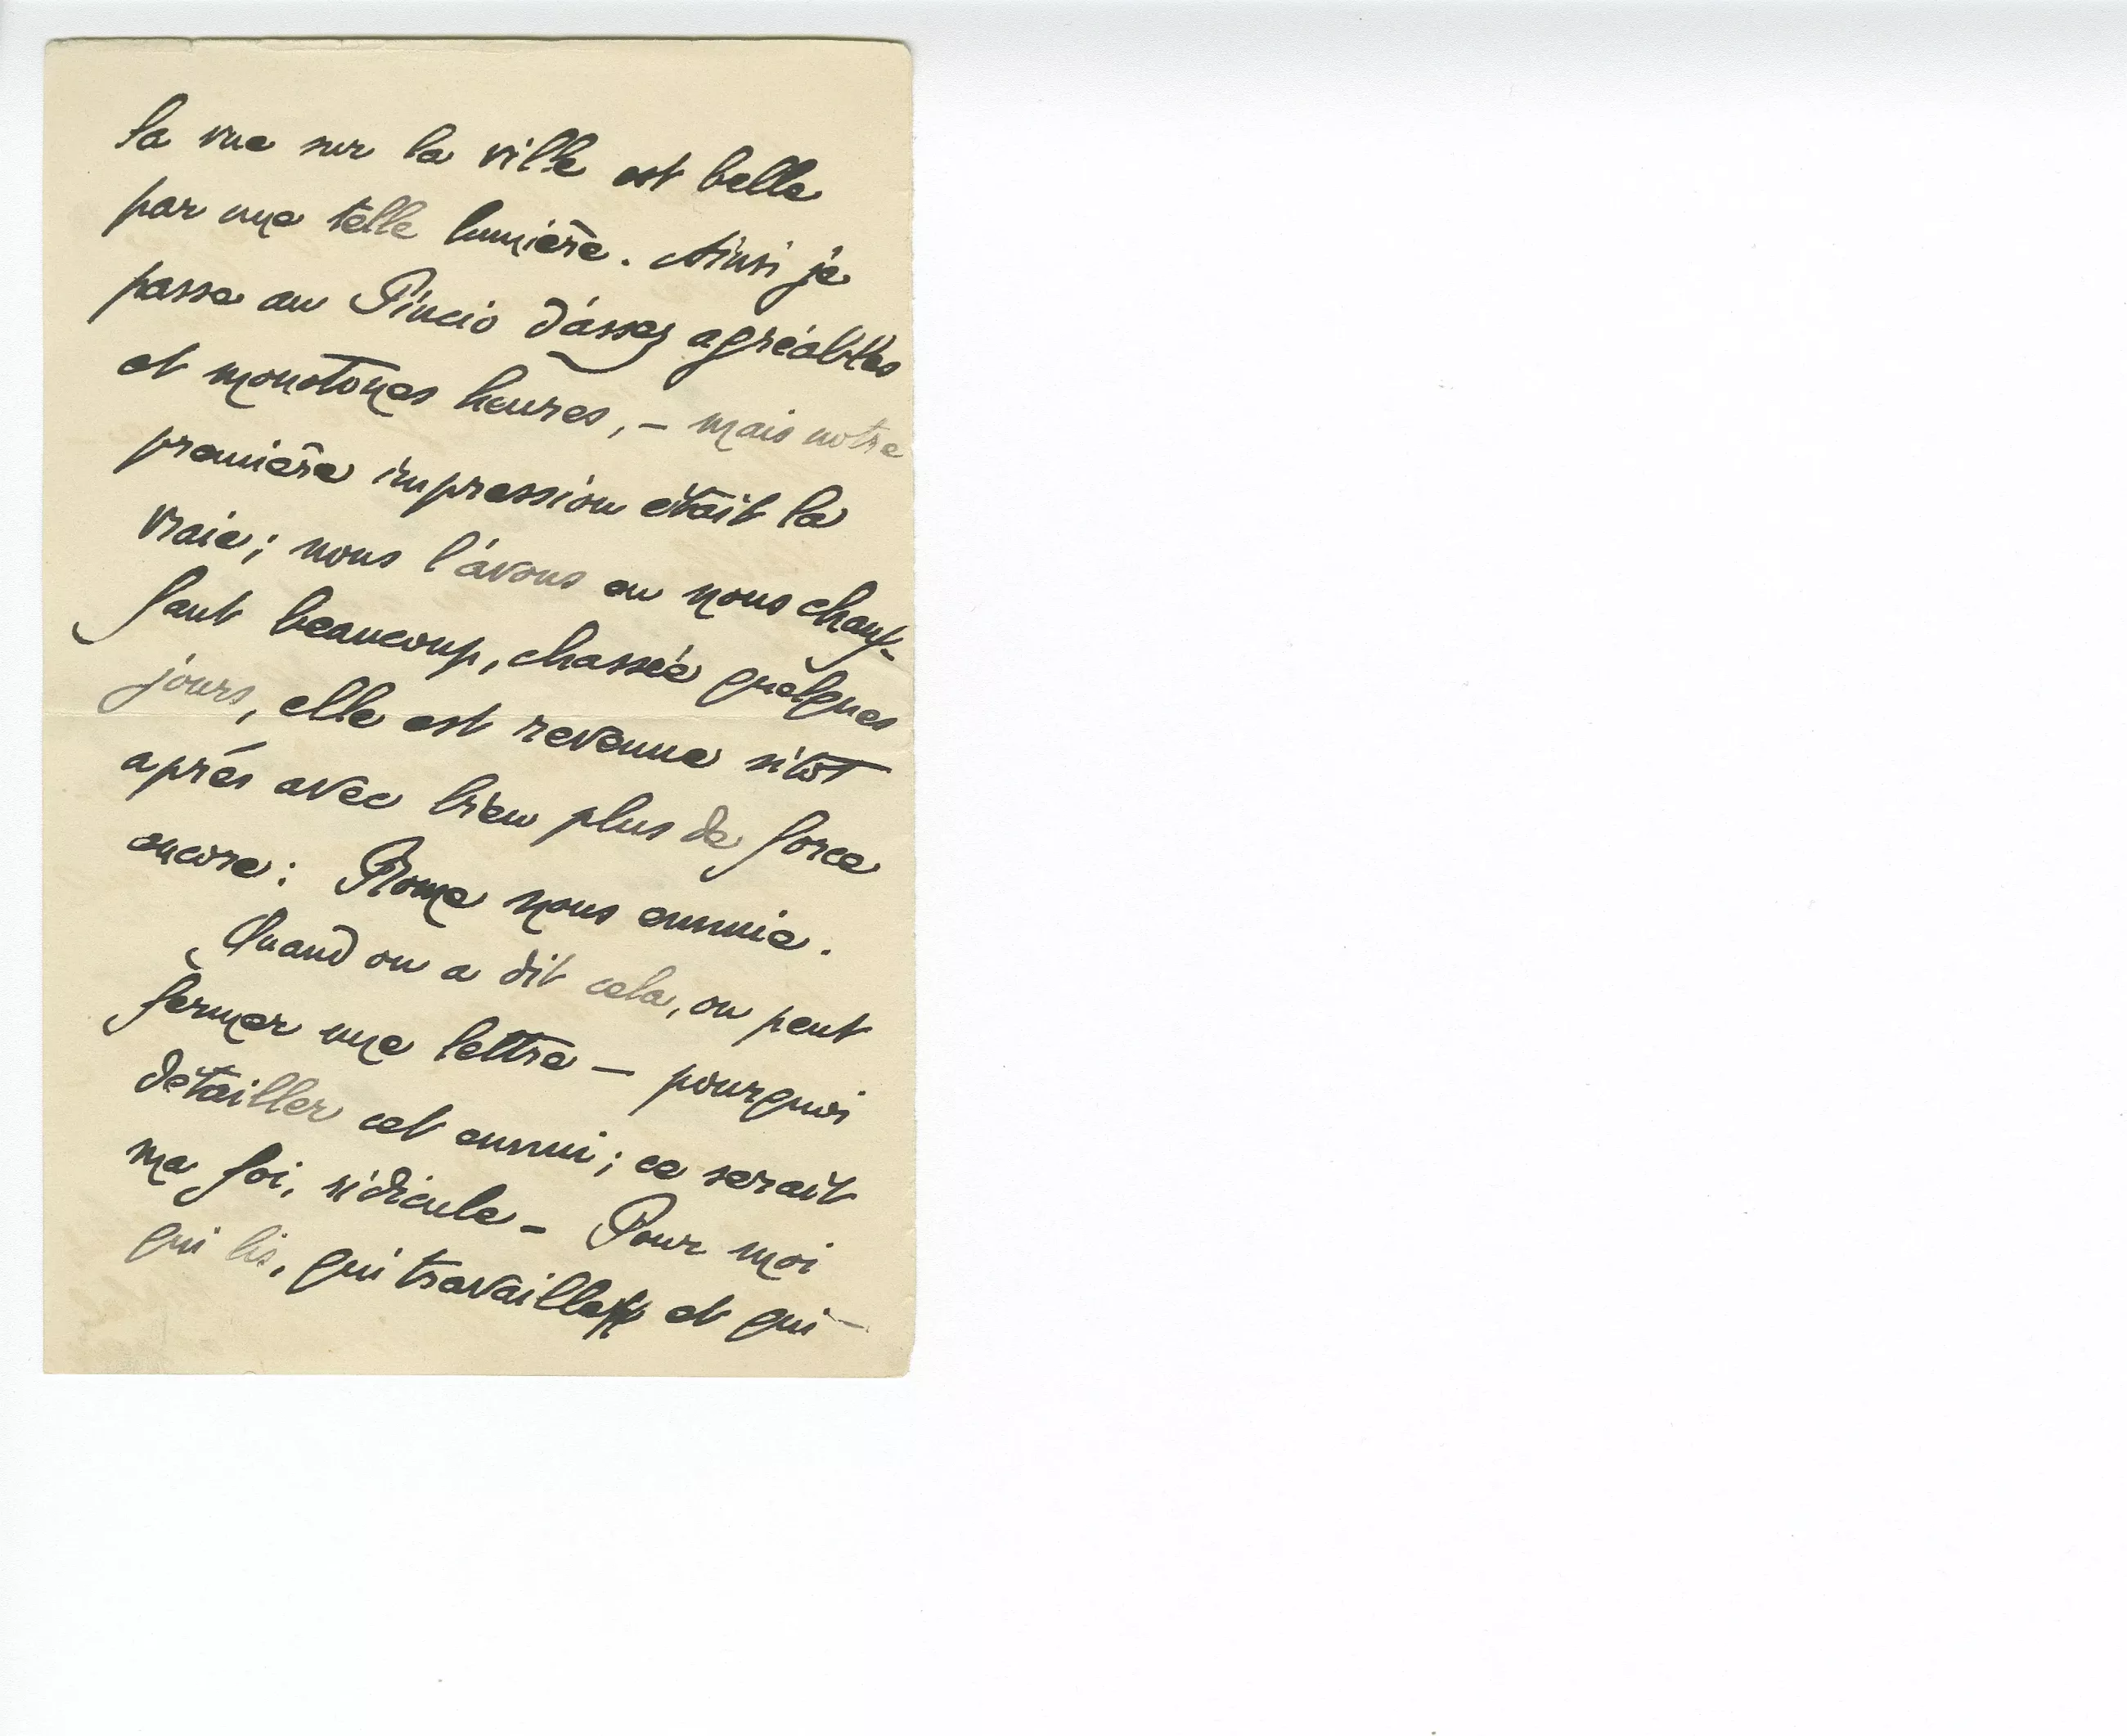 la vue sur la ville est belle
par une telle lumière. Ainsi je
passe au Pincio d'assez agréables
et monotones heures, – mais notre
première impression était la
vraie; nous l'avons en nous chauf-
fant beaucoup, chassée quelques
jours, elle est revenue sitôt
après avec bien plus de force
encore: Rome nous ennuie.
Quand on a dit cela, on peut
fermer une lettre – pourquoi
détailler cet ennui; ce serait
ma foi, ridicule – Pour moi
qui lis, qui travaille et qui –